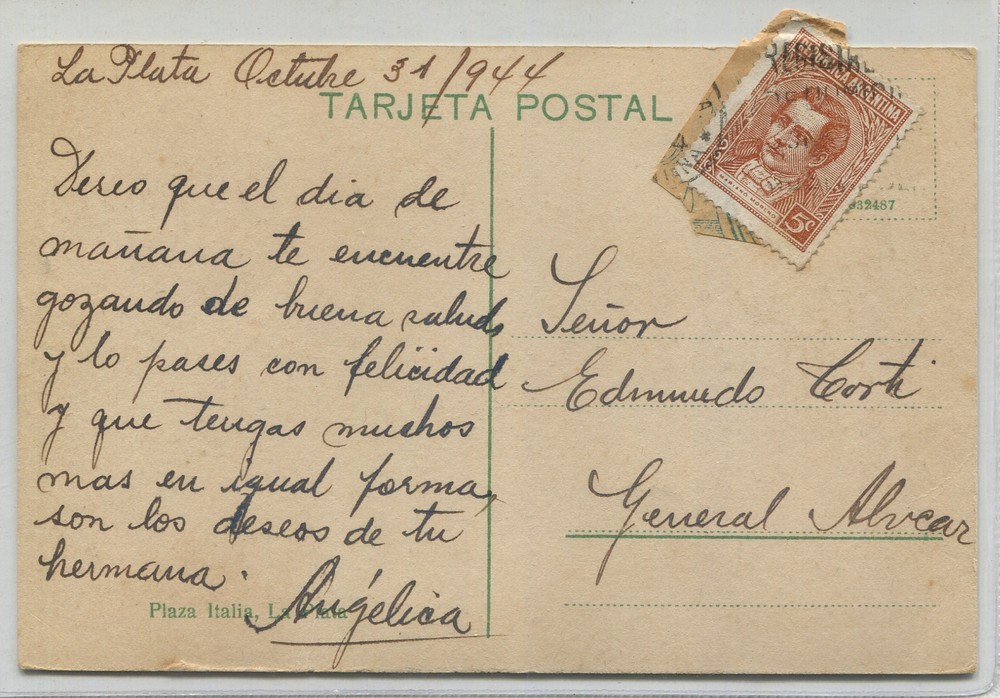 La Plata Octubre 31/944
TARJETA POSTAL
Deseo que el dia de
mañana te encuentre
gozando de buena salud,
y lo pases con felicidad
y que tengas muchos
mas en igual forma,
son los deseos de tu
hermana.
Angélica
Plaza Italia, La Plata
MARIANO MORENO
5c
32487
Señor
Edmundo Corti
General Alvear